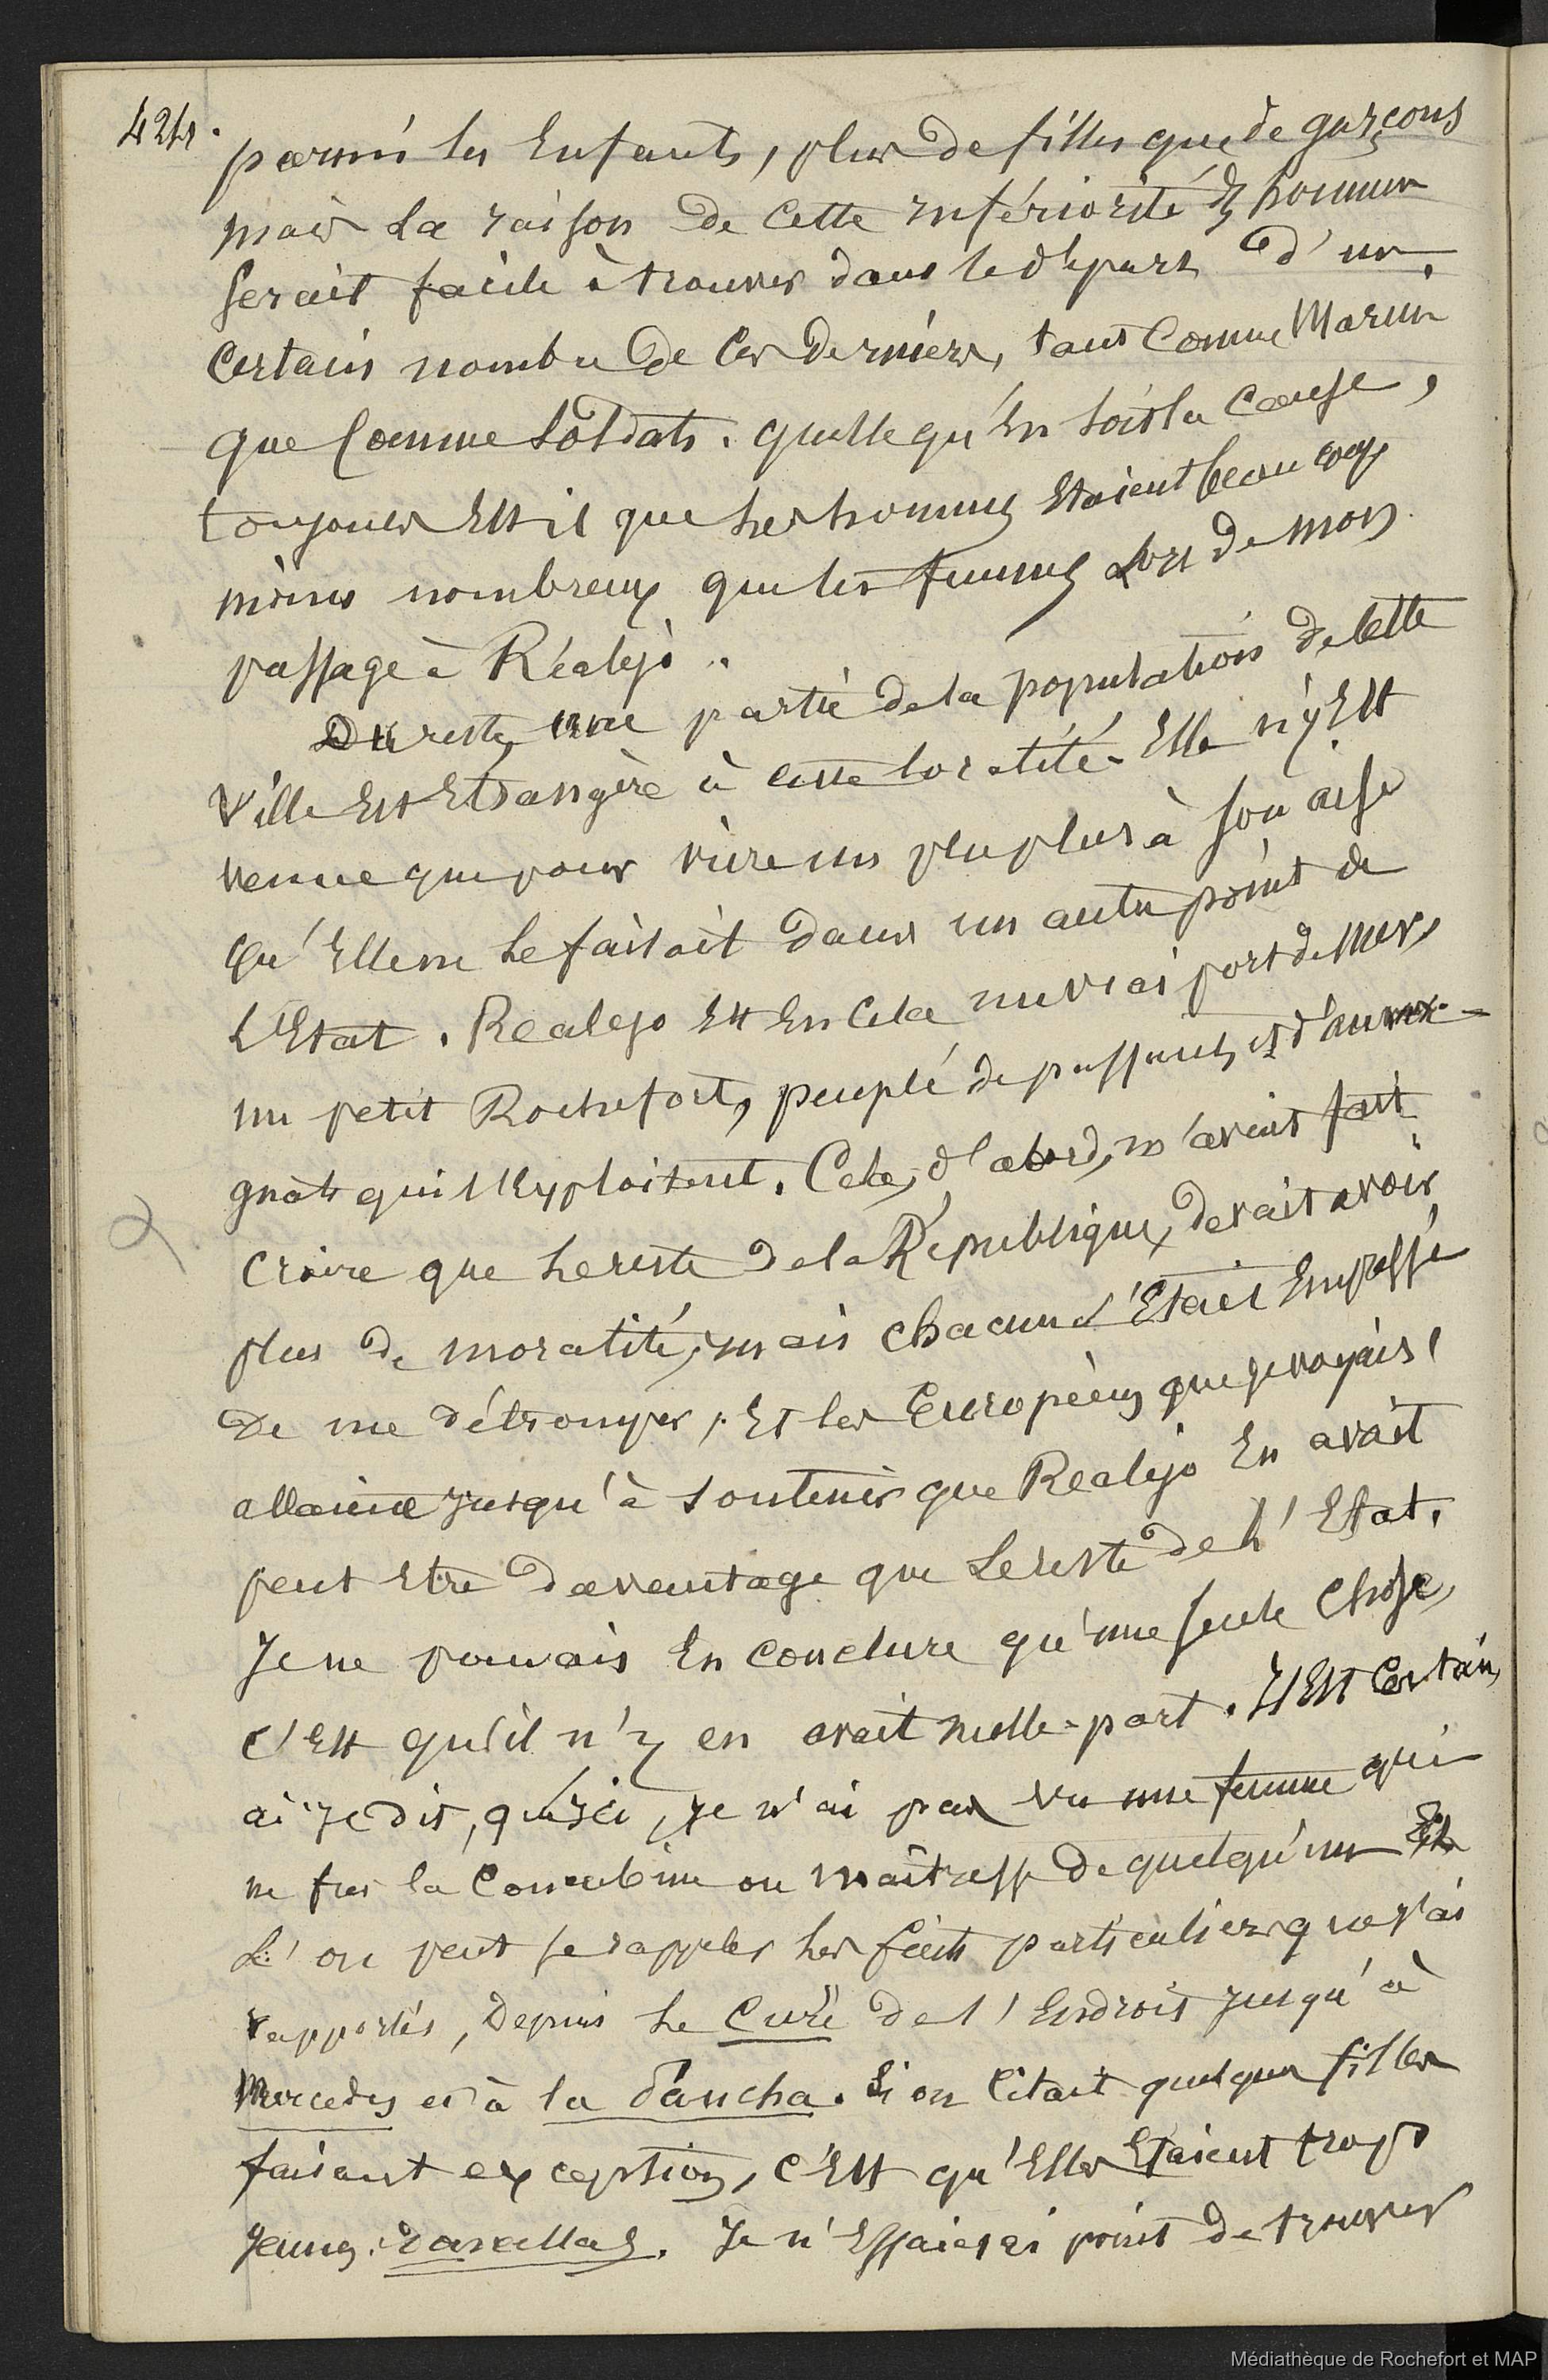 424.
parmi les Enfants, plus de filles que de garçons
mais la raison de cette infériorité d'hommes
serait facile à trouver dans le départ d'un
certain nombre de ces derniers, tant comme Marin
que comme soldats. quelle qu'en soit la cause,
toujours Est il que les hommes Etaient beaucoup
moins nombreux que les femmes lors de mon
passage à Réalejo.
Du reste, une partie de la population de cette
ville Est Etrangère à cette localité. Elle n'y Est
venue que pour vivre un peu plus à son aise
qu'Elle ne le faisait dans un autre point de
l'Etat. Realejo Est En cela un vrai port de mer,
un petit Rochefort, peuplé de passants, et d'auver-
gnats qui l'Exploitent. Cela, d'abord, m'avait fait
croire que le reste de la République, devait avoir
plus de moralité, mais chacun s'Etait Empressé
de me détromper, Et les Européens que je voyais
allaient jusqu'à soutenir que Realejo En avait
peut Etre davantage que le reste de l'Etat.
Je ne pouvais En conclure qu'une seule chose,
c'Est qu'il n'y en avait nulle-part. Il Est Certain,
ai je dit, qu'ici, je n'ai pas vu une femme qui
ne fus la Concubine ou maîtresse de quelqu'un Et
L'on peut se rappeler les faits particuliers que j'ai
rapportés, Depuis le Curé de l'Endroit jusqu'à
Mercedes et à la Pancha. Si on citait quelques filles
faisant exception, c'Est qu'Elles Etaient trop
jeunes. Je n'Essaierai point de trouver
Médiathèque de Rochefort et MAP